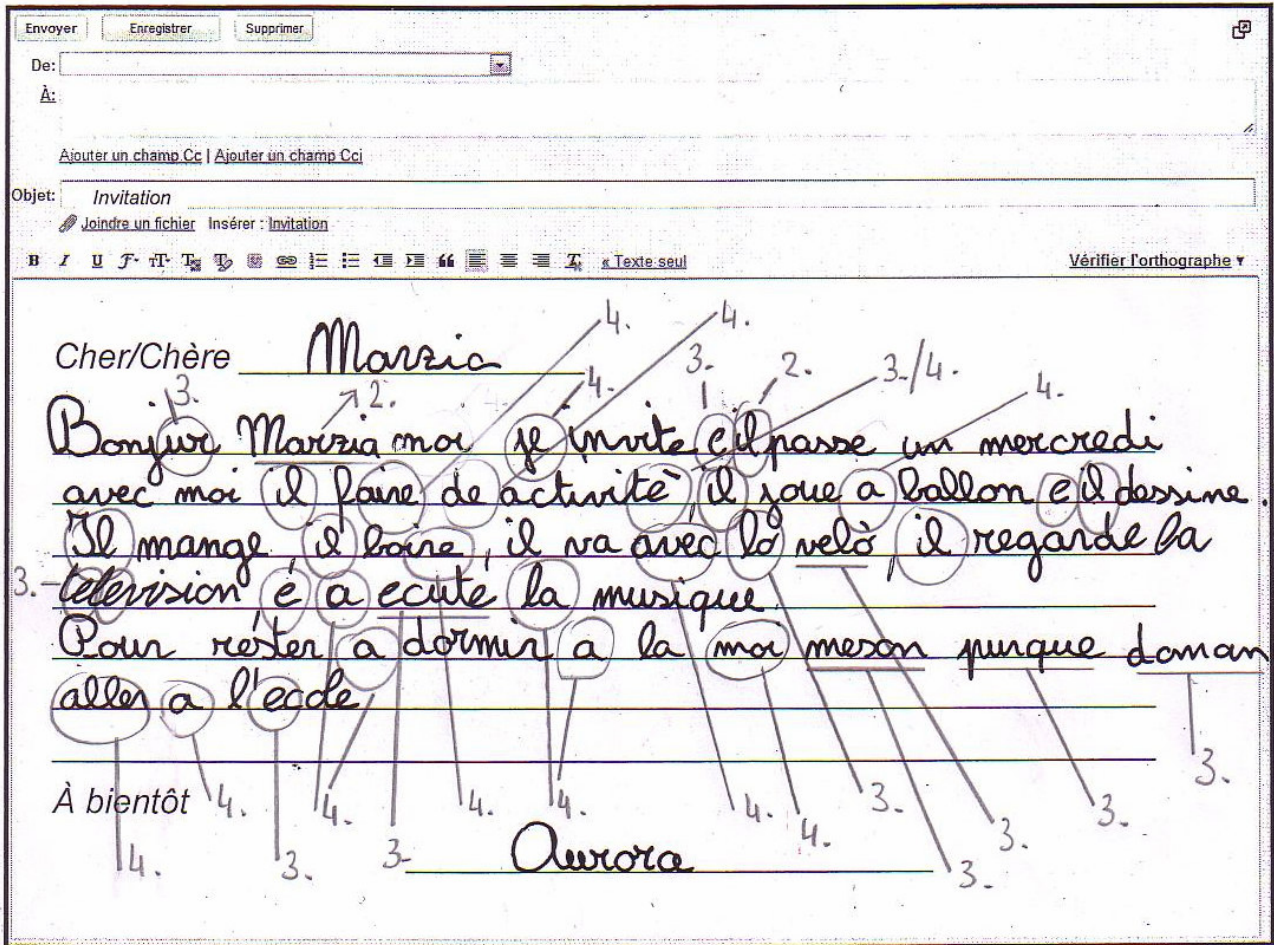 Envoyer Enregistrer Supprimer
De:
À:
Ajouter un champ Cc | Ajouter un champ Cci
Objet: Invitation
Joindre un fichier Insérer : Invitation
B I U « Texte seul Vérifier l'orthographe
4. 4.
Cher/Chère Marzia 4. 3. 2. 3./4. 4.
3. 2.
Bonjur Marzia moi je invite e il passe un mercredi
avec moi il faire de activitè, il joue a ballon e il dessine.
Il mange, il boire, il va avec lo velò, il regarde la
3. television, é a ecuté la musique.
Pour rester a dormir a la moi meson purque doman
aller a l'ecole.
3.
À bientôt 4. 4. 4. 4. 4. 3. 3. 3.
4. 4. 3. 3. 3.
Aurora